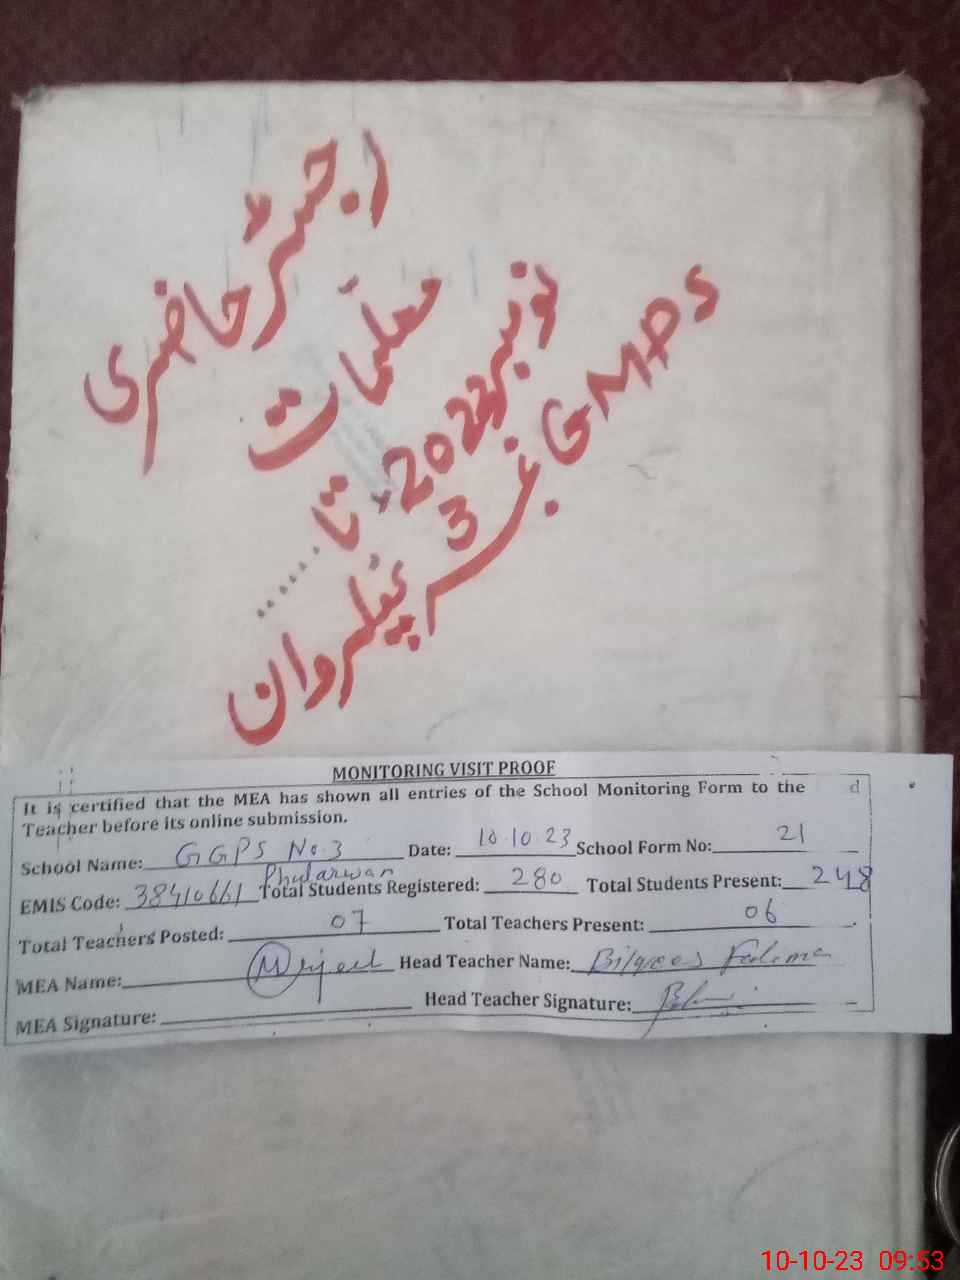 رجسٹر حاضری
معلمات
نومبر 2022 تا ......
GMPS نمبر 3 پھلروان
MONITORING VISIT PROOF
It is certified that the MEA has shown all entries of the School Monitoring Form to the d
Teacher before its online submission.
School Name: GGPS No.3 Phularwan Date: 10.10.23 School Form No: 21
EMIS Code: 38410661 Total Students Registered: 280 Total Students Present: 248
Total Teachers Posted: 07 Total Teachers Present: 06
MEA Name: Head Teacher Name: Bilqees Fatima
MEA Signature: Head Teacher Signature:
10-10-23 09:53